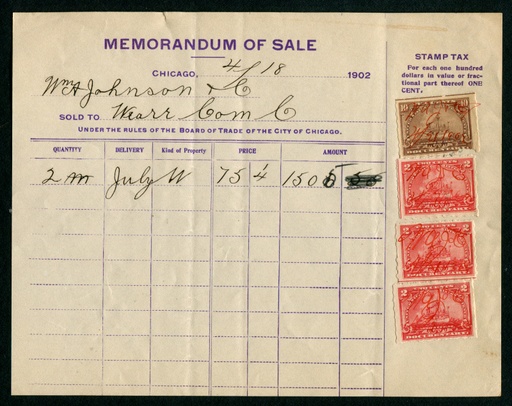 MEMORANDUM OF SALE
CHICAGO, 4/18 1902
Wm A Johnson & Co
SOLD TO Wearr Com C
UNDER THE RULES OF THE BOARD OF TRADE OF THE CITY OF CHICAGO.
QUANTITY DELIVERY Kind of Property PRICE AMOUNT
2 m July W 75 1/4 150
STAMP TAX
For each one hundred
dollars in value or frac-
tional part thereof ONE
CENT.
10
2 2
DOCUMENTARY
2 2
DOCUMENTARY
2 2
DOCUMENTARY